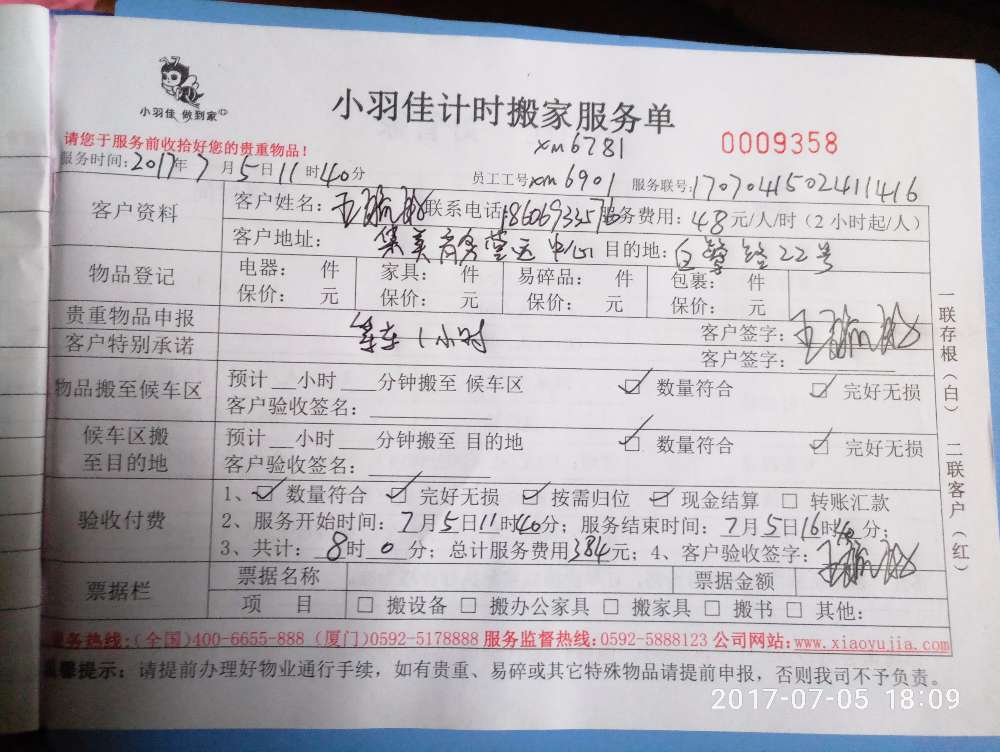 小羽佳 做到家
小羽佳计时搬家服务单
xm6781
0009358
请您于服务前收拾好您的贵重物品！
服务时间：2017年7月5日11时40分 员工工号xm6901 服务联号：1707041502411416
客户资料 客户姓名：王 联系电话 服务费用：48元/人/时（2小时起/人）
客户地址：集美商务营运中心 目的地：22号
物品登记 电器： 件 家具： 件 易碎品： 件 包裹： 件
保价： 元 保价： 元 保价： 元 保价： 元
贵重物品申报 等车1小时 客户签字：王
客户特别承诺 客户签字：
物品搬至候车区 预计__小时__分钟搬至 候车区 ☑ 数量符合 ☑ 完好无损
客户验收签名：
候车区搬至目的地 预计__小时__分钟搬至 目的地 ☑ 数量符合 ☑ 完好无损
客户验收签名：
验收付费 1、☑ 数量符合 ☑ 完好无损 ☑ 按需归位 ☑ 现金结算 □ 转账汇款
2、服务开始时间：7月5日11时40分；服务结束时间：7月5日16时40分；
3、共计：8时0分；总计服务费用384元；4、客户验收签字：王
票据栏 票据名称 票据金额
项 目 □ 搬设备 □ 搬办公家具 □ 搬家具 □ 搬书 □ 其他：
一联存根（白） 二联客户（红）
服务热线：(全国)400-6655-888 (厦门)0592-5178888 服务监督热线：0592-5888123 公司网站：www.xiaoyujia.com
温馨提示：请提前办理好物业通行手续，如有贵重、易碎或其它特殊物品请提前申报，否则我司不予负责。
2017-07-05 18:09